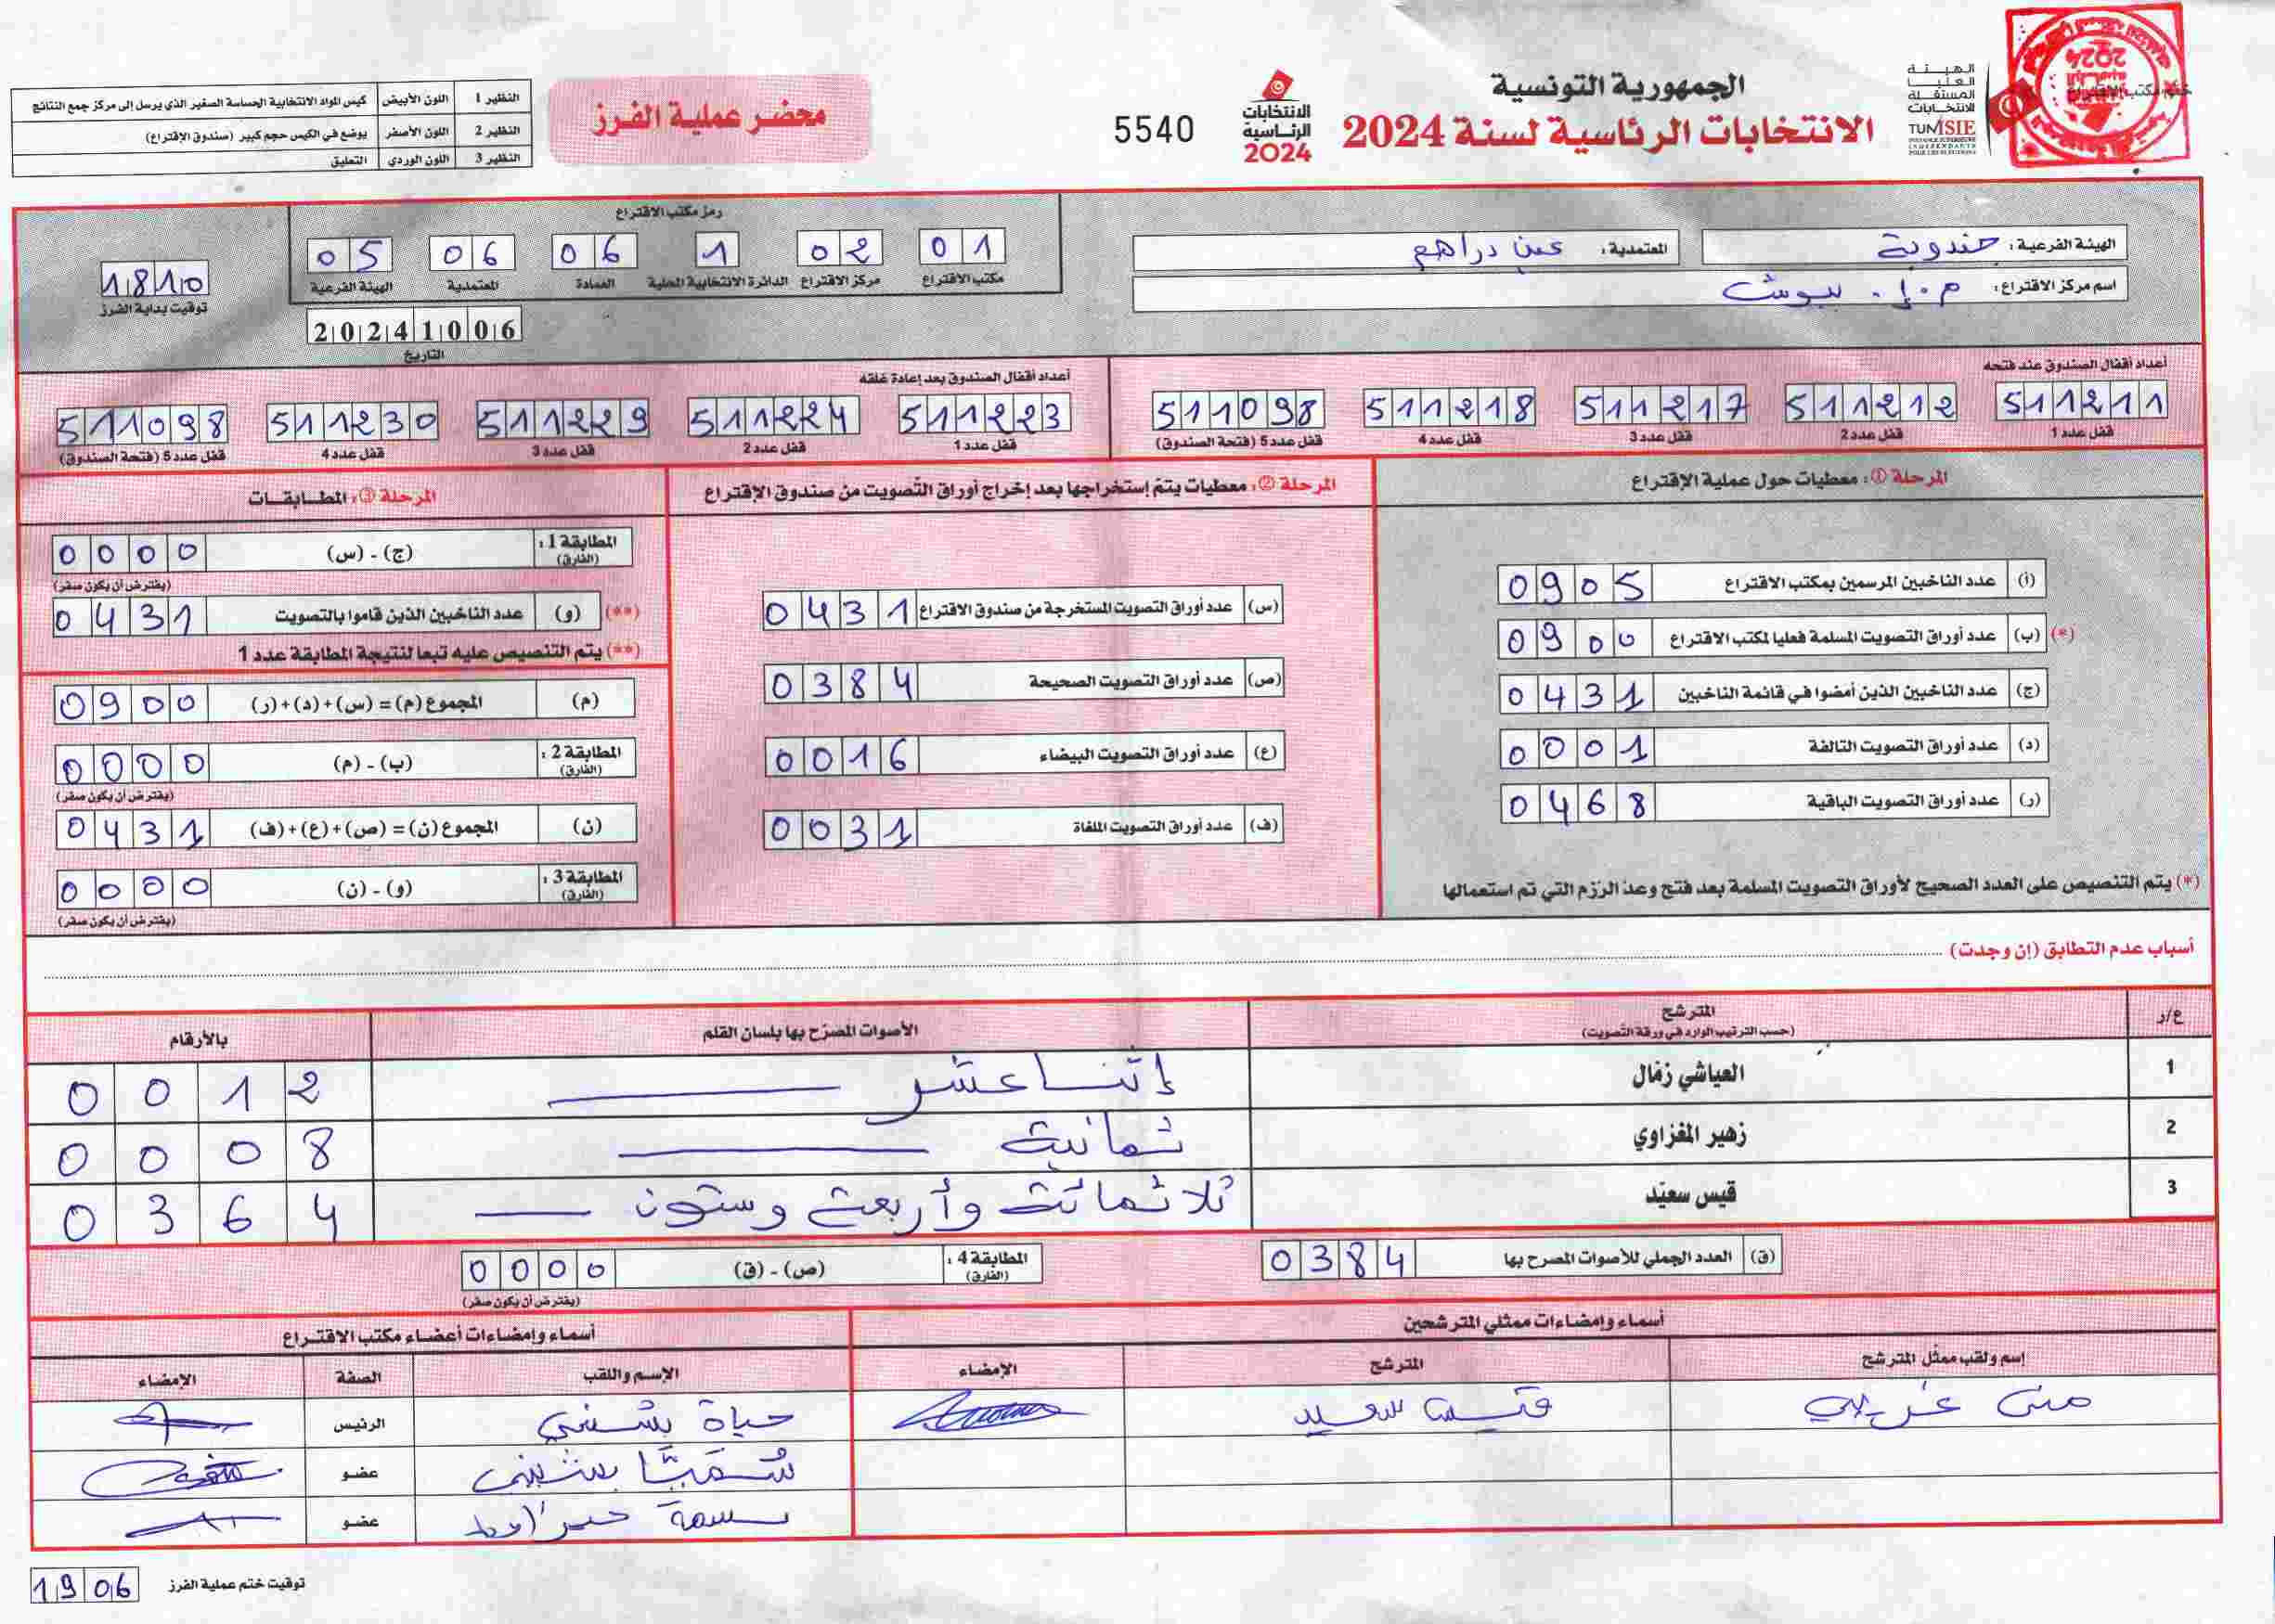 ختم مكتب الاقتراع
الهيئة
العليا
المستقلة
للانتخابات
TUNISIE
الجمهورية التونسية
الانتخابات الرئاسية لسنة 2024
الانتخابات
الرئاسية
2024
5540
محضر عملية الفرز
النظير 1 اللون الأبيض كيس المواد الانتخابية الحساسة الصغير الذي يرسل إلى مركز جمع النتائج
النظير 2 اللون الأصفر يوضع في الكيس حجم كبير (صندوق الإقتراع)
النظير 3 اللون الوردي التعليق
الهيئة الفرعية: جندوبة
المعتمدية: عين دراهم
اسم مركز الاقتراع: م.إ. ببوش
رمز مكتب الاقتراع
01 02 1 06 06 05
مكتب الاقتراع مركز الاقتراع الدائرة الانتخابية المحلية العمادة المعتمدية الهيئة الفرعية
20241006
التاريخ
1810
توقيت بداية الفرز
أعداد أقفال الصندوق عند فتحه
511211 511212 511217 511218 511098
قفل عدد 1 قفل عدد 2 قفل عدد 3 قفل عدد 4 قفل عدد 5 (فتحة الصندوق)
أعداد أقفال الصندوق بعد إعادة غلقه
511223 511224 511229 511230 511098
قفل عدد 1 قفل عدد 2 قفل عدد 3 قفل عدد 4 قفل عدد 5 (فتحة الصندوق)
المرحلة ①: معطيات حول عملية الإقتراع
(أ) عدد الناخبين المرسمين بمكتب الاقتراع 0905
(*) (ب) عدد أوراق التصويت المسلمة فعليا لمكتب الاقتراع 0900
(ج) عدد الناخبين الذين أمضوا في قائمة الناخبين 0431
(د) عدد أوراق التصويت التالفة 0001
(ر) عدد أوراق التصويت الباقية 0468
(*) يتم التنصيص على العدد الصحيح لأوراق التصويت المسلمة بعد فتح وعدّ الرّزم التي تم استعمالها
المرحلة ②: معطيات يتمّ إستخراجها بعد إخراج أوراق التّصويت من صندوق الإقتراع
(س) عدد أوراق التصويت المستخرجة من صندوق الاقتراع 0431
(ص) عدد أوراق التصويت الصحيحة 0384
(ع) عدد أوراق التصويت البيضاء 0016
(ف) عدد أوراق التصويت الملغاة 0031
المرحلة ③: المطابقات
المطابقة 1: (الفارق) (ج) - (س) 0000
(يفترض أن يكون صفر)
(**) (و) عدد الناخبين الذين قاموا بالتصويت 0431
(**) يتم التنصيص عليه تبعا لنتيجة المطابقة عدد 1
(م) المجموع (م) = (س) + (د) + (ر) 0900
المطابقة 2: (الفارق) (ب) - (م) 0000
(يفترض أن يكون صفر)
(ن) المجموع (ن) = (ص) + (ع) + (ف) 0431
المطابقة 3: (الفارق) (و) - (ن) 0000
(يفترض أن يكون صفر)
أسباب عدم التطابق (إن وجدت)
ع/ر المترشح (حسب الترتيب الوارد في ورقة التصويت) الأصوات المصرّح بها بلسان القلم بالأرقام
1 العياشي زمّال إتنا عشر 0012
2 زهير المغزاوي ثمانية 0008
3 قيس سعيّد ثلاثمائة وأربعة وستون 0364
(ق) العدد الجملي للأصوات المصرح بها 0384
المطابقة 4: (الفارق) (ص) - (ق) 0000
(يفترض أن يكون صفر)
أسماء وإمضاءات ممثلي المترشحين
إسم ولقب ممثّل المترشح المترشح الإمضاء
قيس سعيد
أسماء وإمضاءات أعضاء مكتب الاقتراع
الإسم واللقب الصفة الإمضاء
حياة بشيني الرئيس
عضو
بسمة عضو
توقيت ختم عملية الفرز 1906